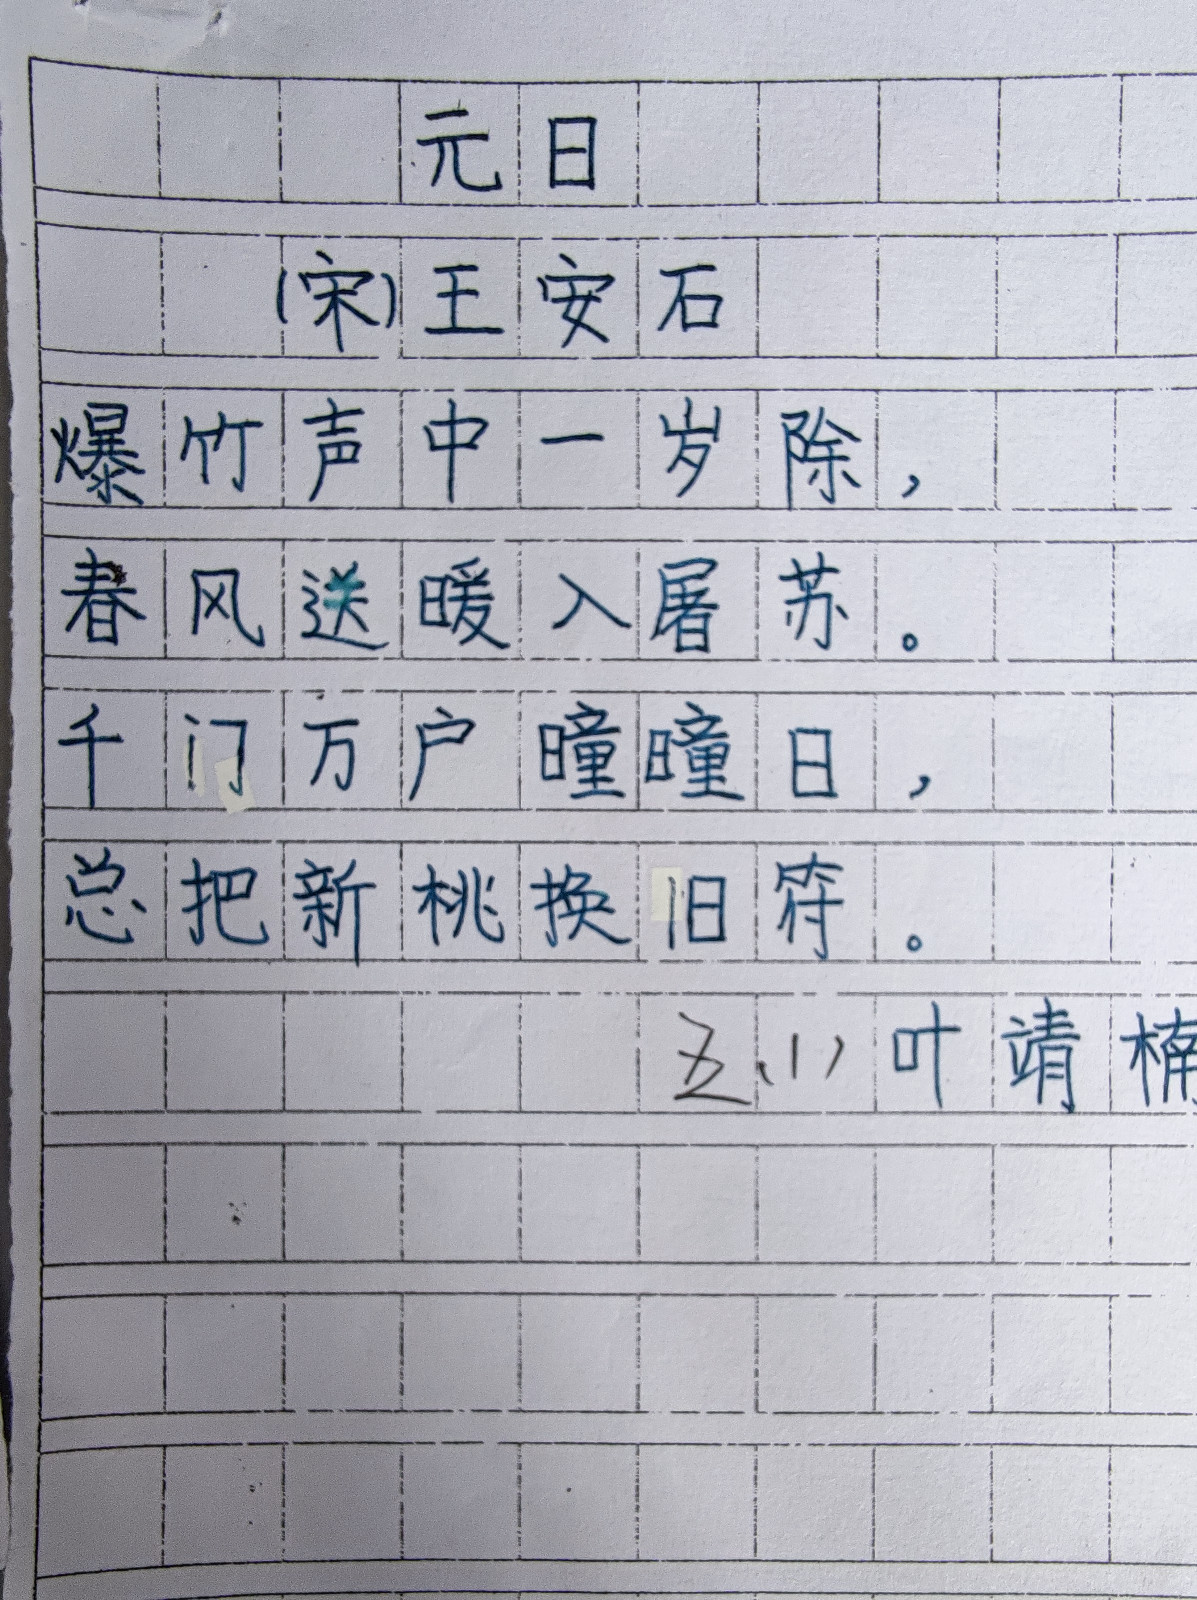 元日
(宋)王安石
爆竹声中一岁除，
春风送暖入屠苏。
千门万户曈曈日，
总把新桃换旧符。
五、(1)叶靖楠